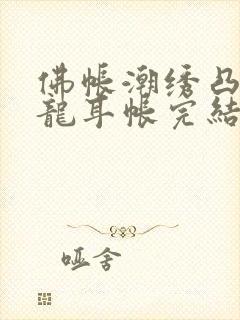 佛帳潮绣凸
龍耳帳完結
哑舍